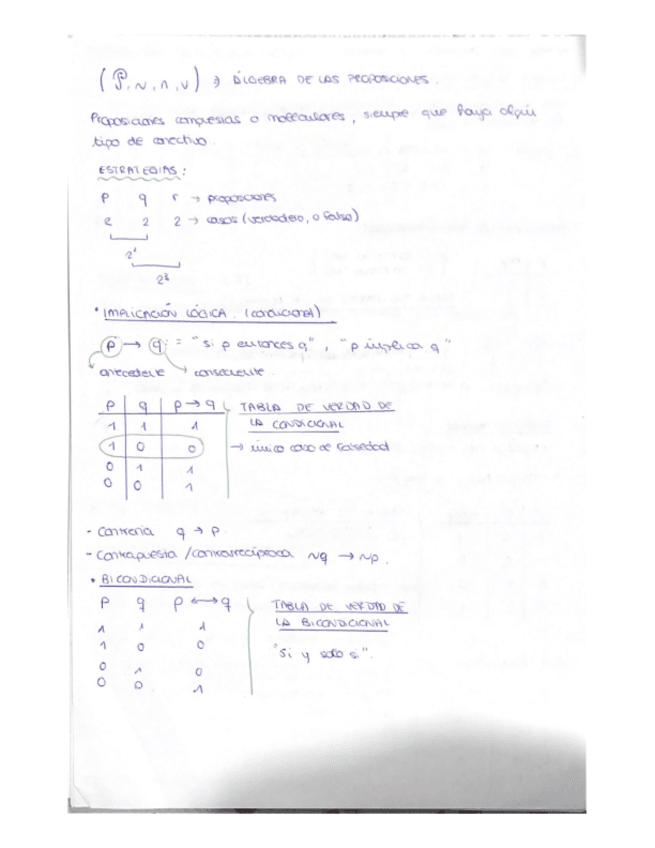 (P, ~, ∧, ∨) → ÁLGEBRA DE LAS PROPOSICIONES.
Proposiciones compuestas o moleculares, siempre que haya algún
tipo de conectivo.
ESTRATEGIAS:
p q r → proposiciones
2 2 2 → casos (verdadero, o falso)
2²
2³
• IMPLICACIÓN LÓGICA. (condicional)
p → q : = "si p entonces q", "p implica q"
antecedente consecuente.
p q p → q TABLA DE VERDAD DE
LA CONDICIONAL
1 1 1
1 0 0 → único caso de falsedad
0 1 1
0 0 1
- Contraria q → p.
- Contrapuesta / contrarrecíproca ~q → ~p.
• BICONDICIONAL
p q p ↔ q TABLA DE VERDAD DE
LA BICONDICIONAL
1 1 1
1 0 0 "si y solo si".
0 1 0
0 0 1